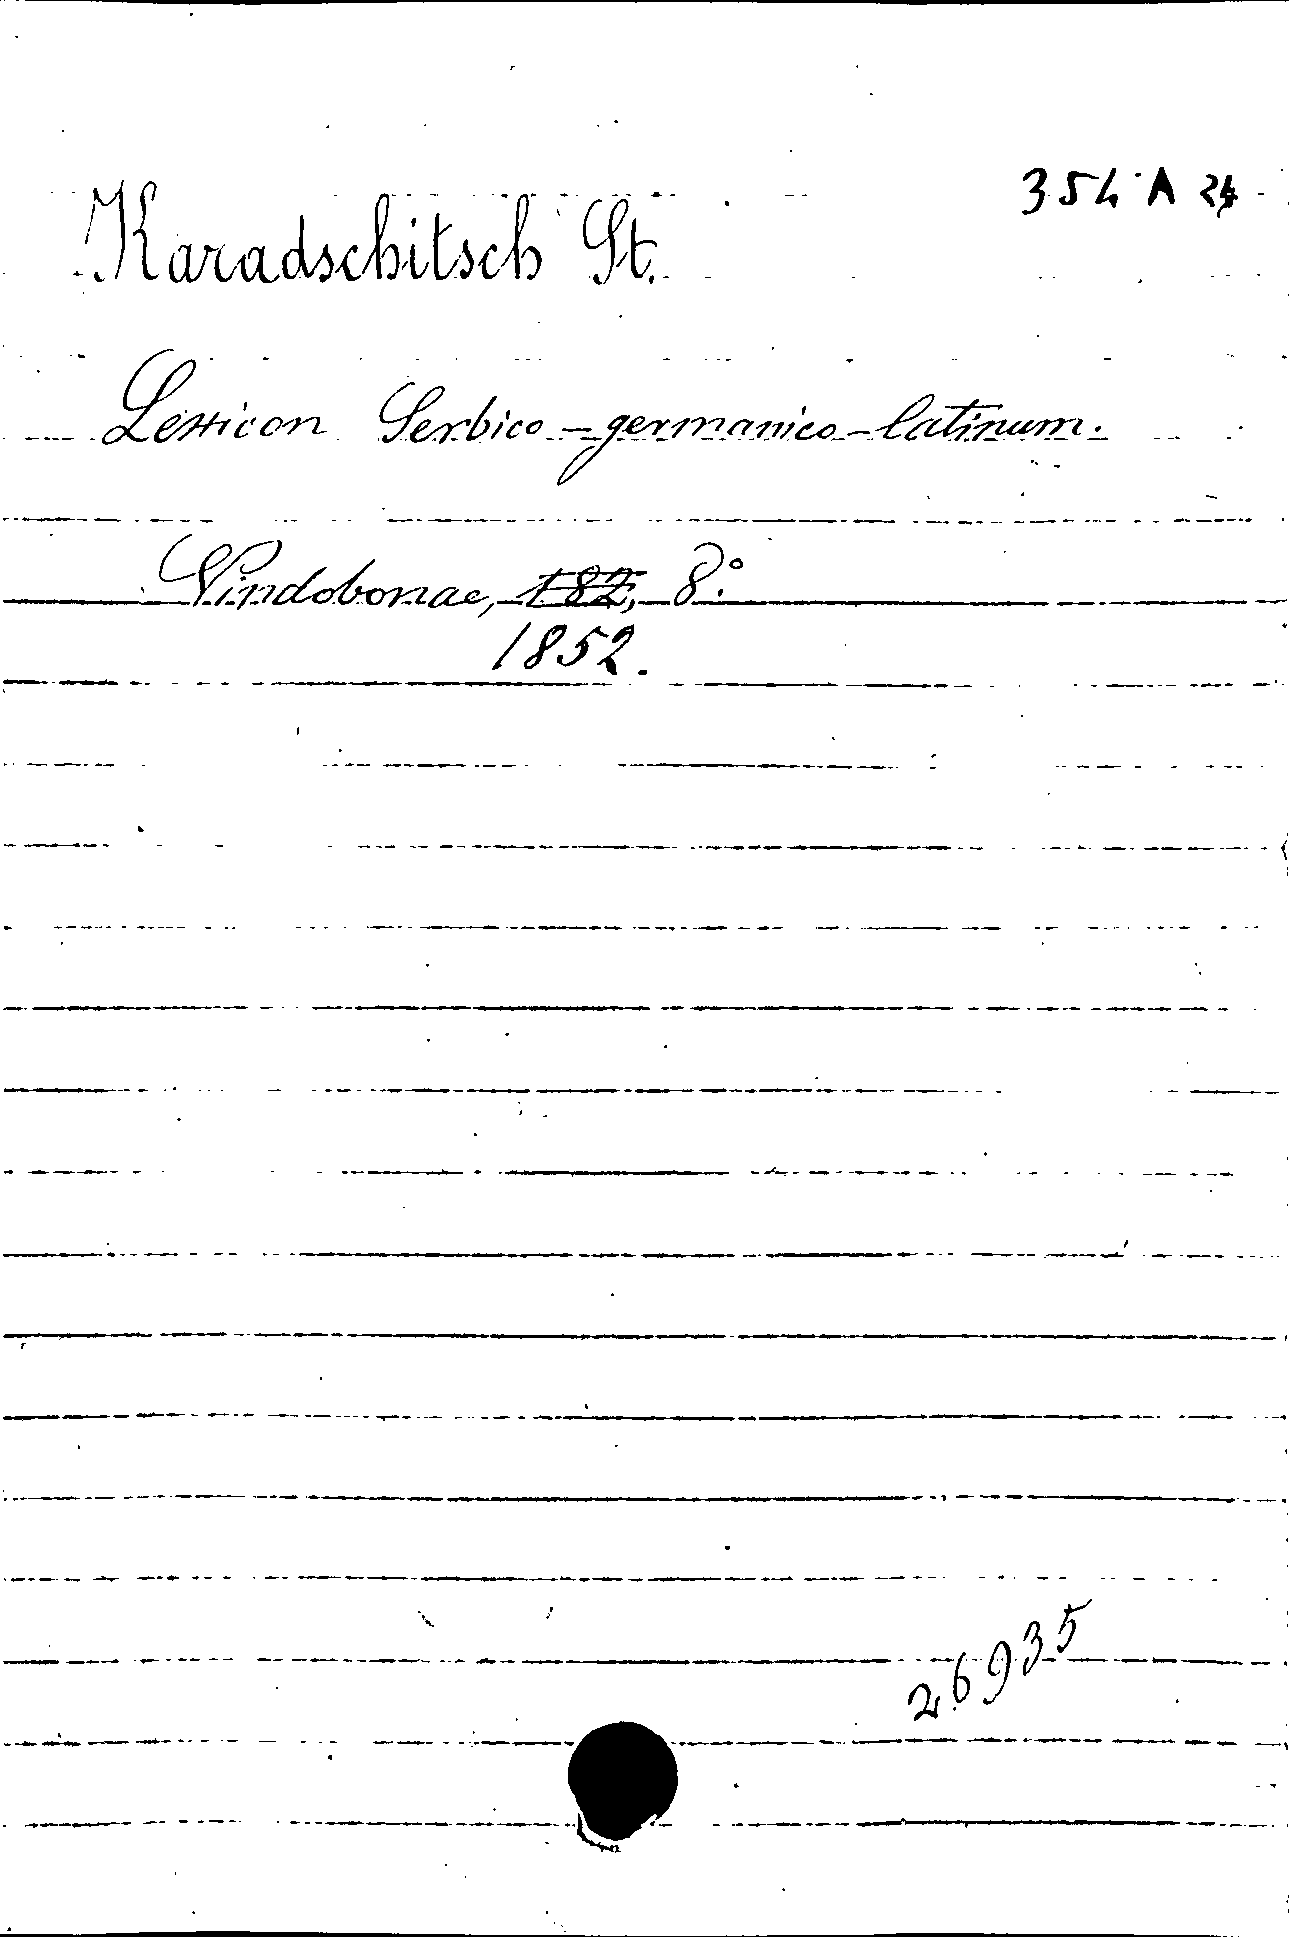 354 A 24
Karadschitsch St.
Lexicon Serbico-germanico-latinum.
Vindobonae, 182, 8.°
1852.
26935